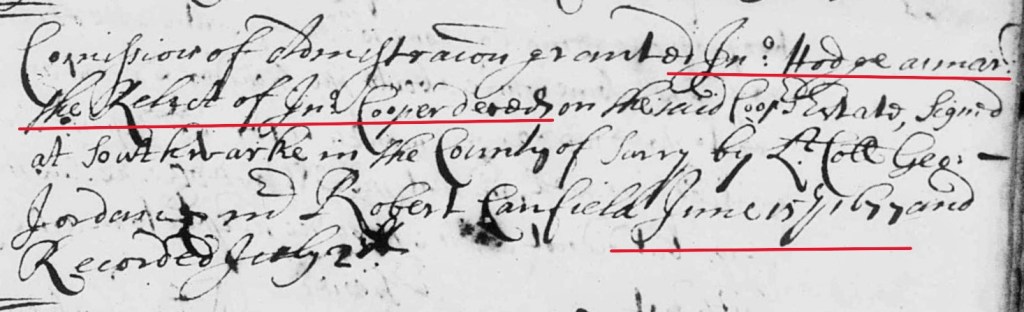 Comission of Admistracon granted Jno: Hodge as mar:
the Relict of Jno: Cooper deced on the said Cooprs Estate, signed
at Southwarke in the County of Surry by Lt. Coll Geo: –
Jordan and Robert Canfield June 15th 1677 and
Recorded July 2d